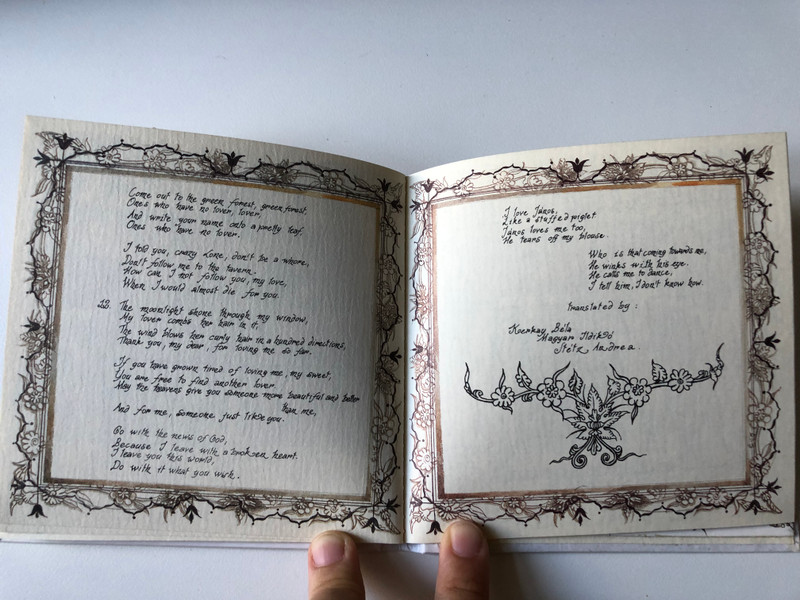 Come out to the green forest, green forest
Ones who have no lover, lover,
And write your name onto a pretty leaf,
Ones who have no lover.
I told you, crazy Lone, don't be a whore,
Don't follow me to the tavern.
How can I not follow you, my love,
When I would almost die for you.
22. The moonlight shone through my window,
My lover combs her hair in it,
The wind blows her curly hair in a hundred directions,
Thank you, my dear, for loving me so far.
If you have grown tired of loving me, my sweet,
You are free to find another lover.
May the heavens give you someone more beautiful and better
than me,
And for me, someone just like you.
Go with the news of God,
Because I leave with a broken heart.
I leave you this world,
Do with it what you wish.
I love János,
Like a stuffed piglet
János loves me too,
He tears off my blouse.
Who is that coming towards me,
He winks with his eye.
He calls me to dance,
I tell him, I don't know how.
translated by:
Kverkay Béla
Magyar Ildikó
Stétz Andrea.